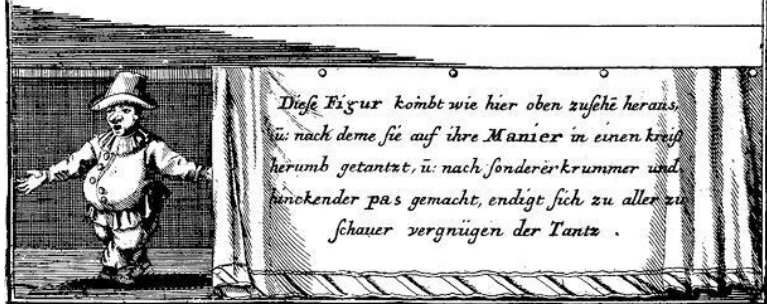 Dieſe Figur kombt wie hier oben zuſehē heraus,
ū: nach deme ſie auf ihre Manier in einen kreiß
herumb getantzt, ū: nach ſonderer krummer und
hinckender pas gemacht, endigt ſich zu aller zu
ſchauer vergnügen der Tantz .